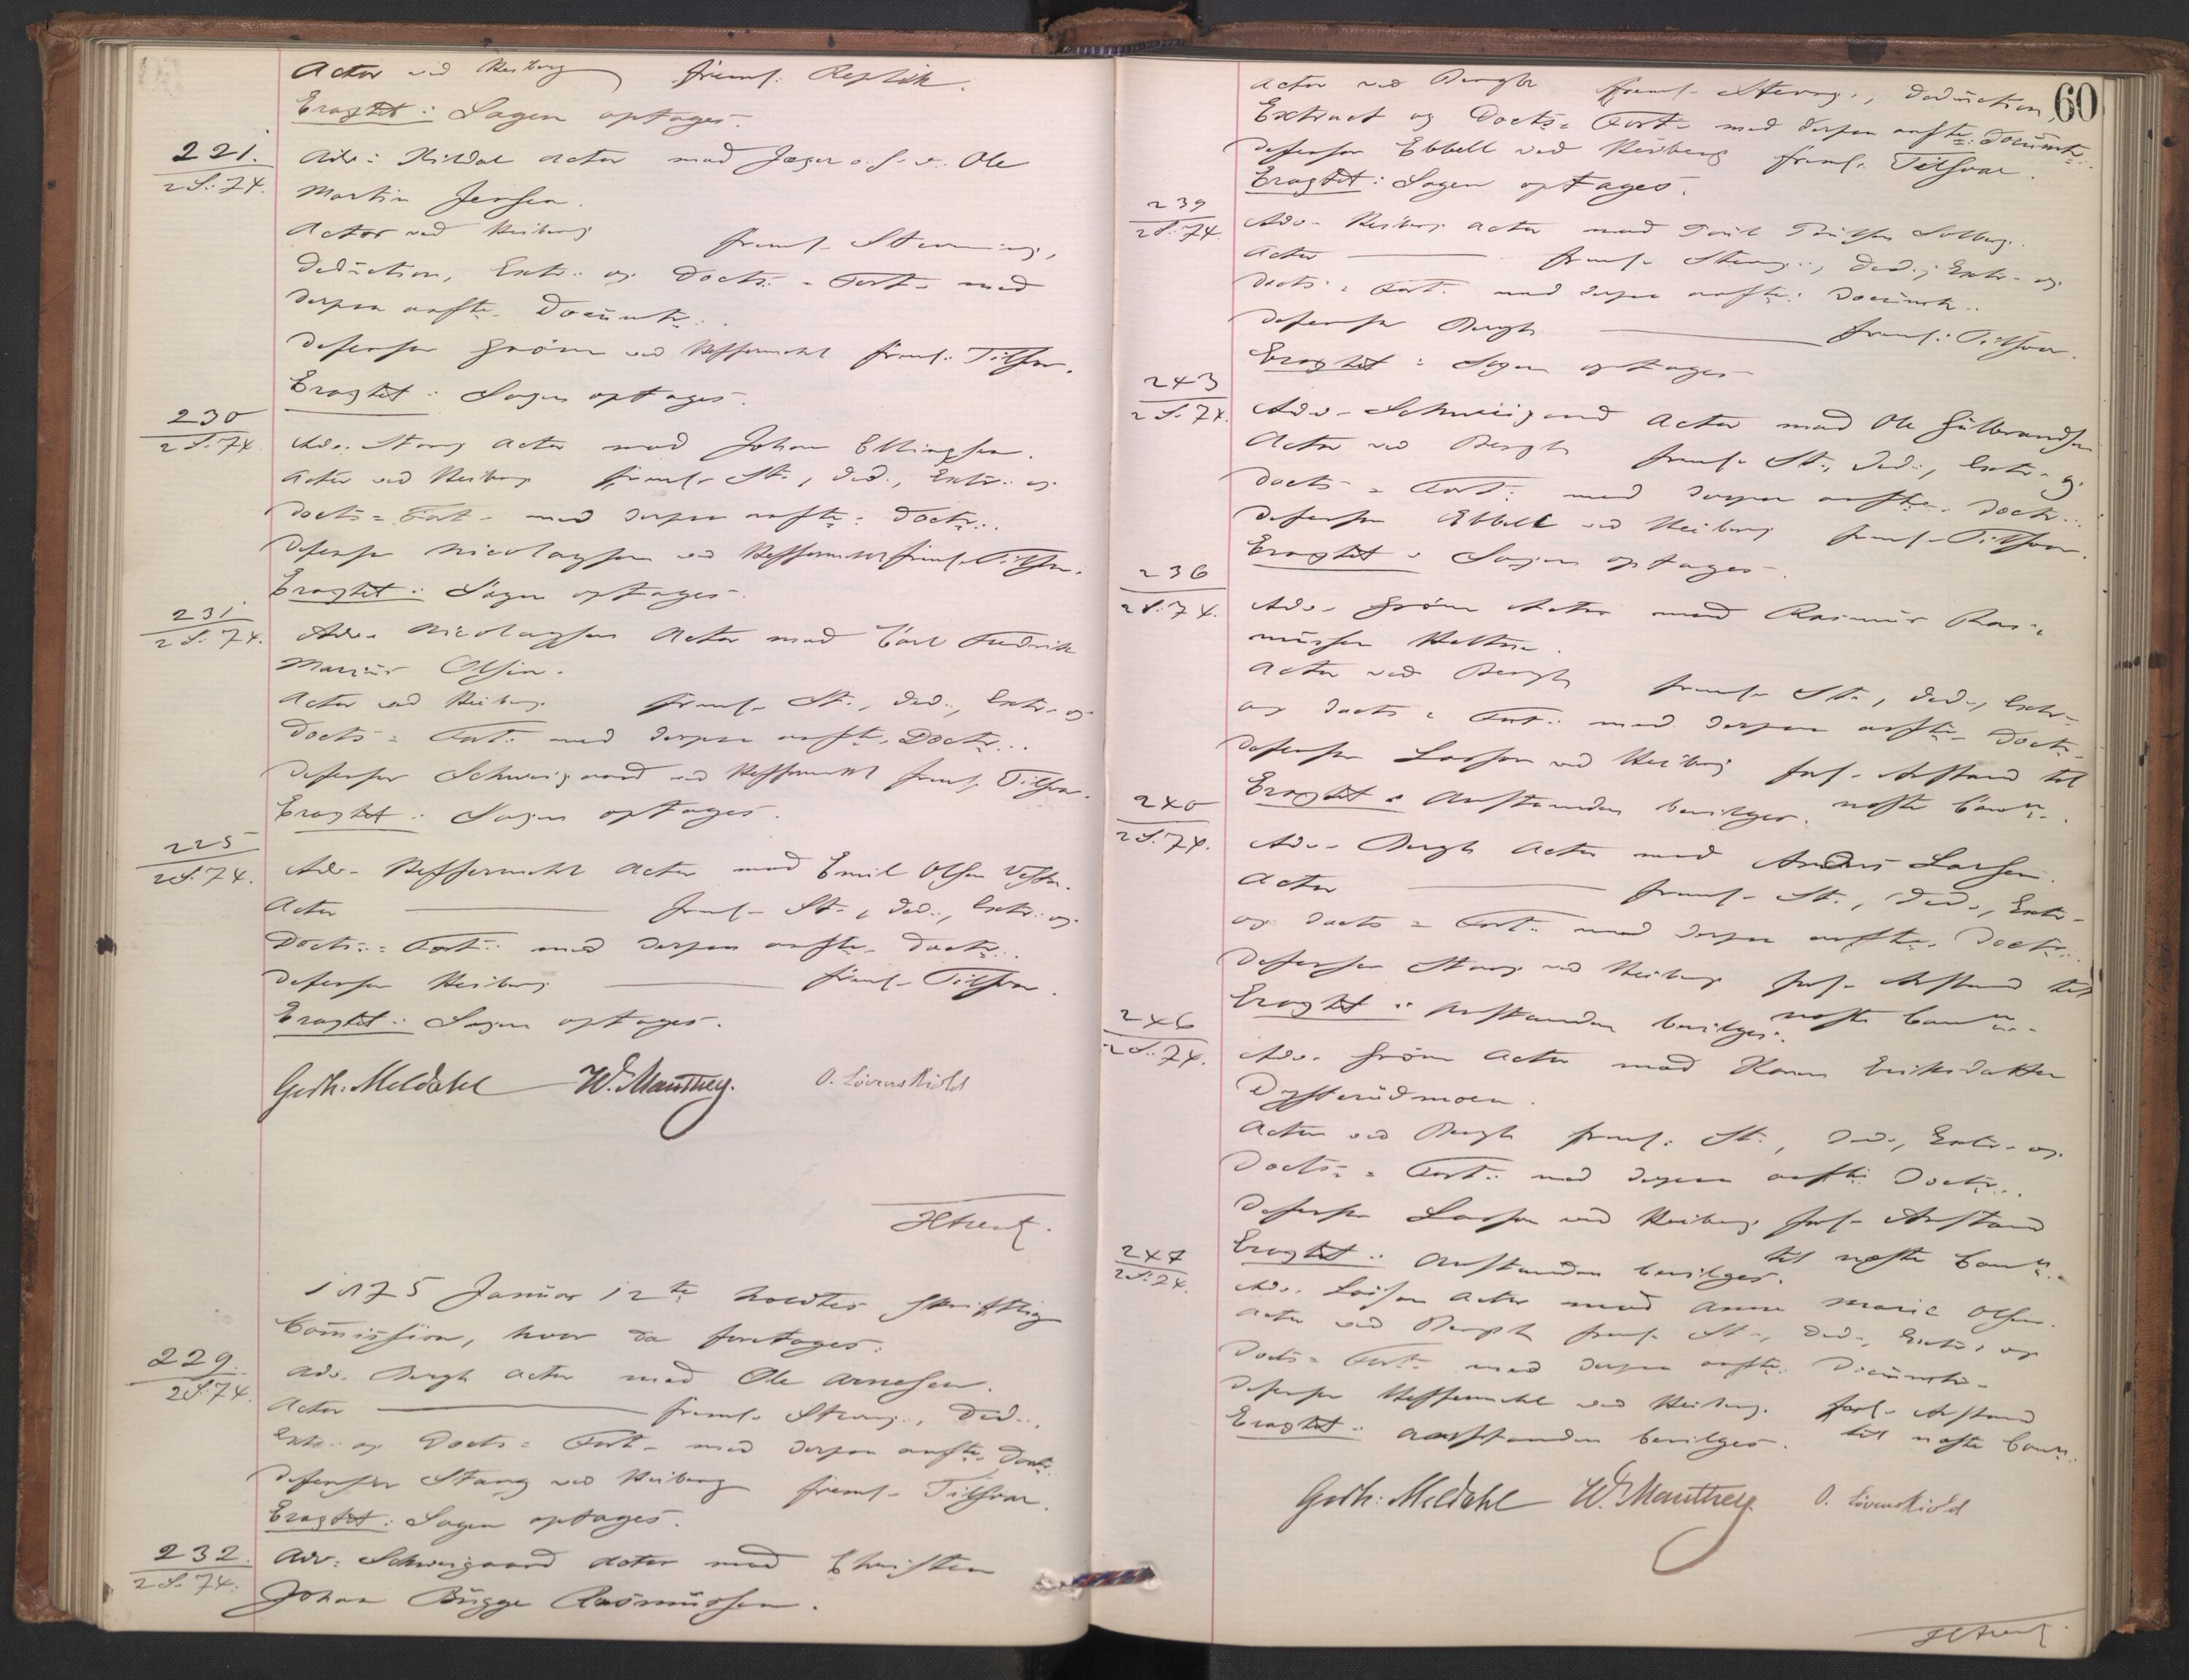 Actor ved Heiberg freml: Replik.
Eragtet: Sagen optages.
221.
2S: 74.
Adv: Kildal Actor mod Jæger o. s. v. Ole
Martin Jensen.
Actor ved Heiberg freml. Stevning,
Deduction, Extr: og Docts: = Fort. med
derpaa anfte. Documtr:.
Defensor Grøm ved Hoffermehl freml: Tilsvar.
Eragtet: Sagen optages.
230
2S. 74.
Adv. Stang Actor mod Johan Ellingsen.
Actor ved Heiberg freml. St., Ded., Extr: og
Docts = Fort. med derpaa anfte: Doctr:.
Defensor Nicolaysen ved Hoffermehl freml. Tilsvar.
Eragtet: Sagen optages.
231
2S: 74.
Adv. Nicolaysen Actor mod Carl Fredrik
Marius Olsen.
Actor ved Heiberg freml. St., Ded., Extr. og
Docts = Fort. med derpaa anfte. Doctr:.
Defensor Schweigaard ved Hoffermehl freml. Tilsvar.
Eragtet: Sagen optages.
225
2S. 74.
Adv. Hoffermehl Actor mod Emil Olsen
Actor ——— freml. St., Ded., Extr: og
Docts: = Fort: med derpaa anfte. Doctr:.
Defensor Heiberg ——— freml. Tilsvar.
Eragtet: Sagen optages.
Gerh: Meldahl W. Manthey. O. Løvenskiold
1875 Januar 12te holdtes skriftlig
Commission, hvor da foretoges:
229.
2S: 74.
Adv. Bergh Actor mod Ole Arnesen.
Actor ——— freml. Stevng., Ded:.,
Extr: og Docts = Fort. med derpaa anfte. Doctr.
Defensor Stang ved Heiberg freml. Tilsvar.
Eragtet: Sagen optages.
232.
2S. 74.
Adv: Schweigaard Actor mod Christen
Johan Brügge Rasmussen.
60
Actor ved Bergh freml. Stevng., Deduction,
Extract og Docts = Fort. med derpaa anfte. Documtr:.
Defensor Ebbell ved Heiberg freml. Tilsvar.
Eragtet: Sagen optages.
239
2S. 74.
Adv. Heiberg Actor mod Poul Poulsen Solberg.
Actor ——— freml. Stevng:, Ded., Extr. og
Docts = Fort. med derpaa anfte: Documtr:.
Defensor Bergh ——— freml: Tilsvar.
Eragtet: Sagen optages
243
2S. 74.
Adv. Schweigaard Actor mod Ole Gulbrandsen
Actor ved Bergh freml. St., Ded:, Extr. og
Docts = Fort: med derpaa anfte. Doctr:.
Defensor Ebbell ved Heiberg freml. Tilsvar.
Eragtet: Sagen optages.
236
2S. 74.
Adv. Grøm Actor mod Rasmus Ras=
mussen
Actor ved Bergh freml. St., Ded., Extr.
og Docts = Fort: med derpaa anfte. Doctr.
Defensor Lasson ved Heiberg forl. Anstand til
Eragtet: Anstanden bevilges. næste Comn.
240
2S. 74.
Adv. Bergh Actor mod Anders Larsen.
Actor ——— freml. St., Ded., Extr.
og Docts = Fort. med derpaa anfte. Doctr:.
Defensor Stang ved Heiberg forl. Anstand til
Eragtet: Anstanden bevilges. næste Comn.
246
2S: 74.
Adv. Grøm Actor mod Karen Eriksdatter
Dysterudmoen.
Actor ved Bergh freml: St., Ded., Extr. og
Docts: = Fort: med derpaa anfte Doctr:.
Defensor Lasson ved Heiberg forl. Anstand
Eragtet: Anstanden bevilges. til næste Comn.
247
2S: 74.
Adv. Lasson Actor mod Anne Marie Olsen.
Actor ved Bergh freml. St., Ded., Extr. og
Docts = Fort. med derpaa anfte: Documtr.
Defensor Hoffermehl ved Heiberg. forl. Anstand
Eragtet: Anstanden bevilges. til næste Comn.
Gerh: Meldahl W. Manthey. O. Løvenskiold